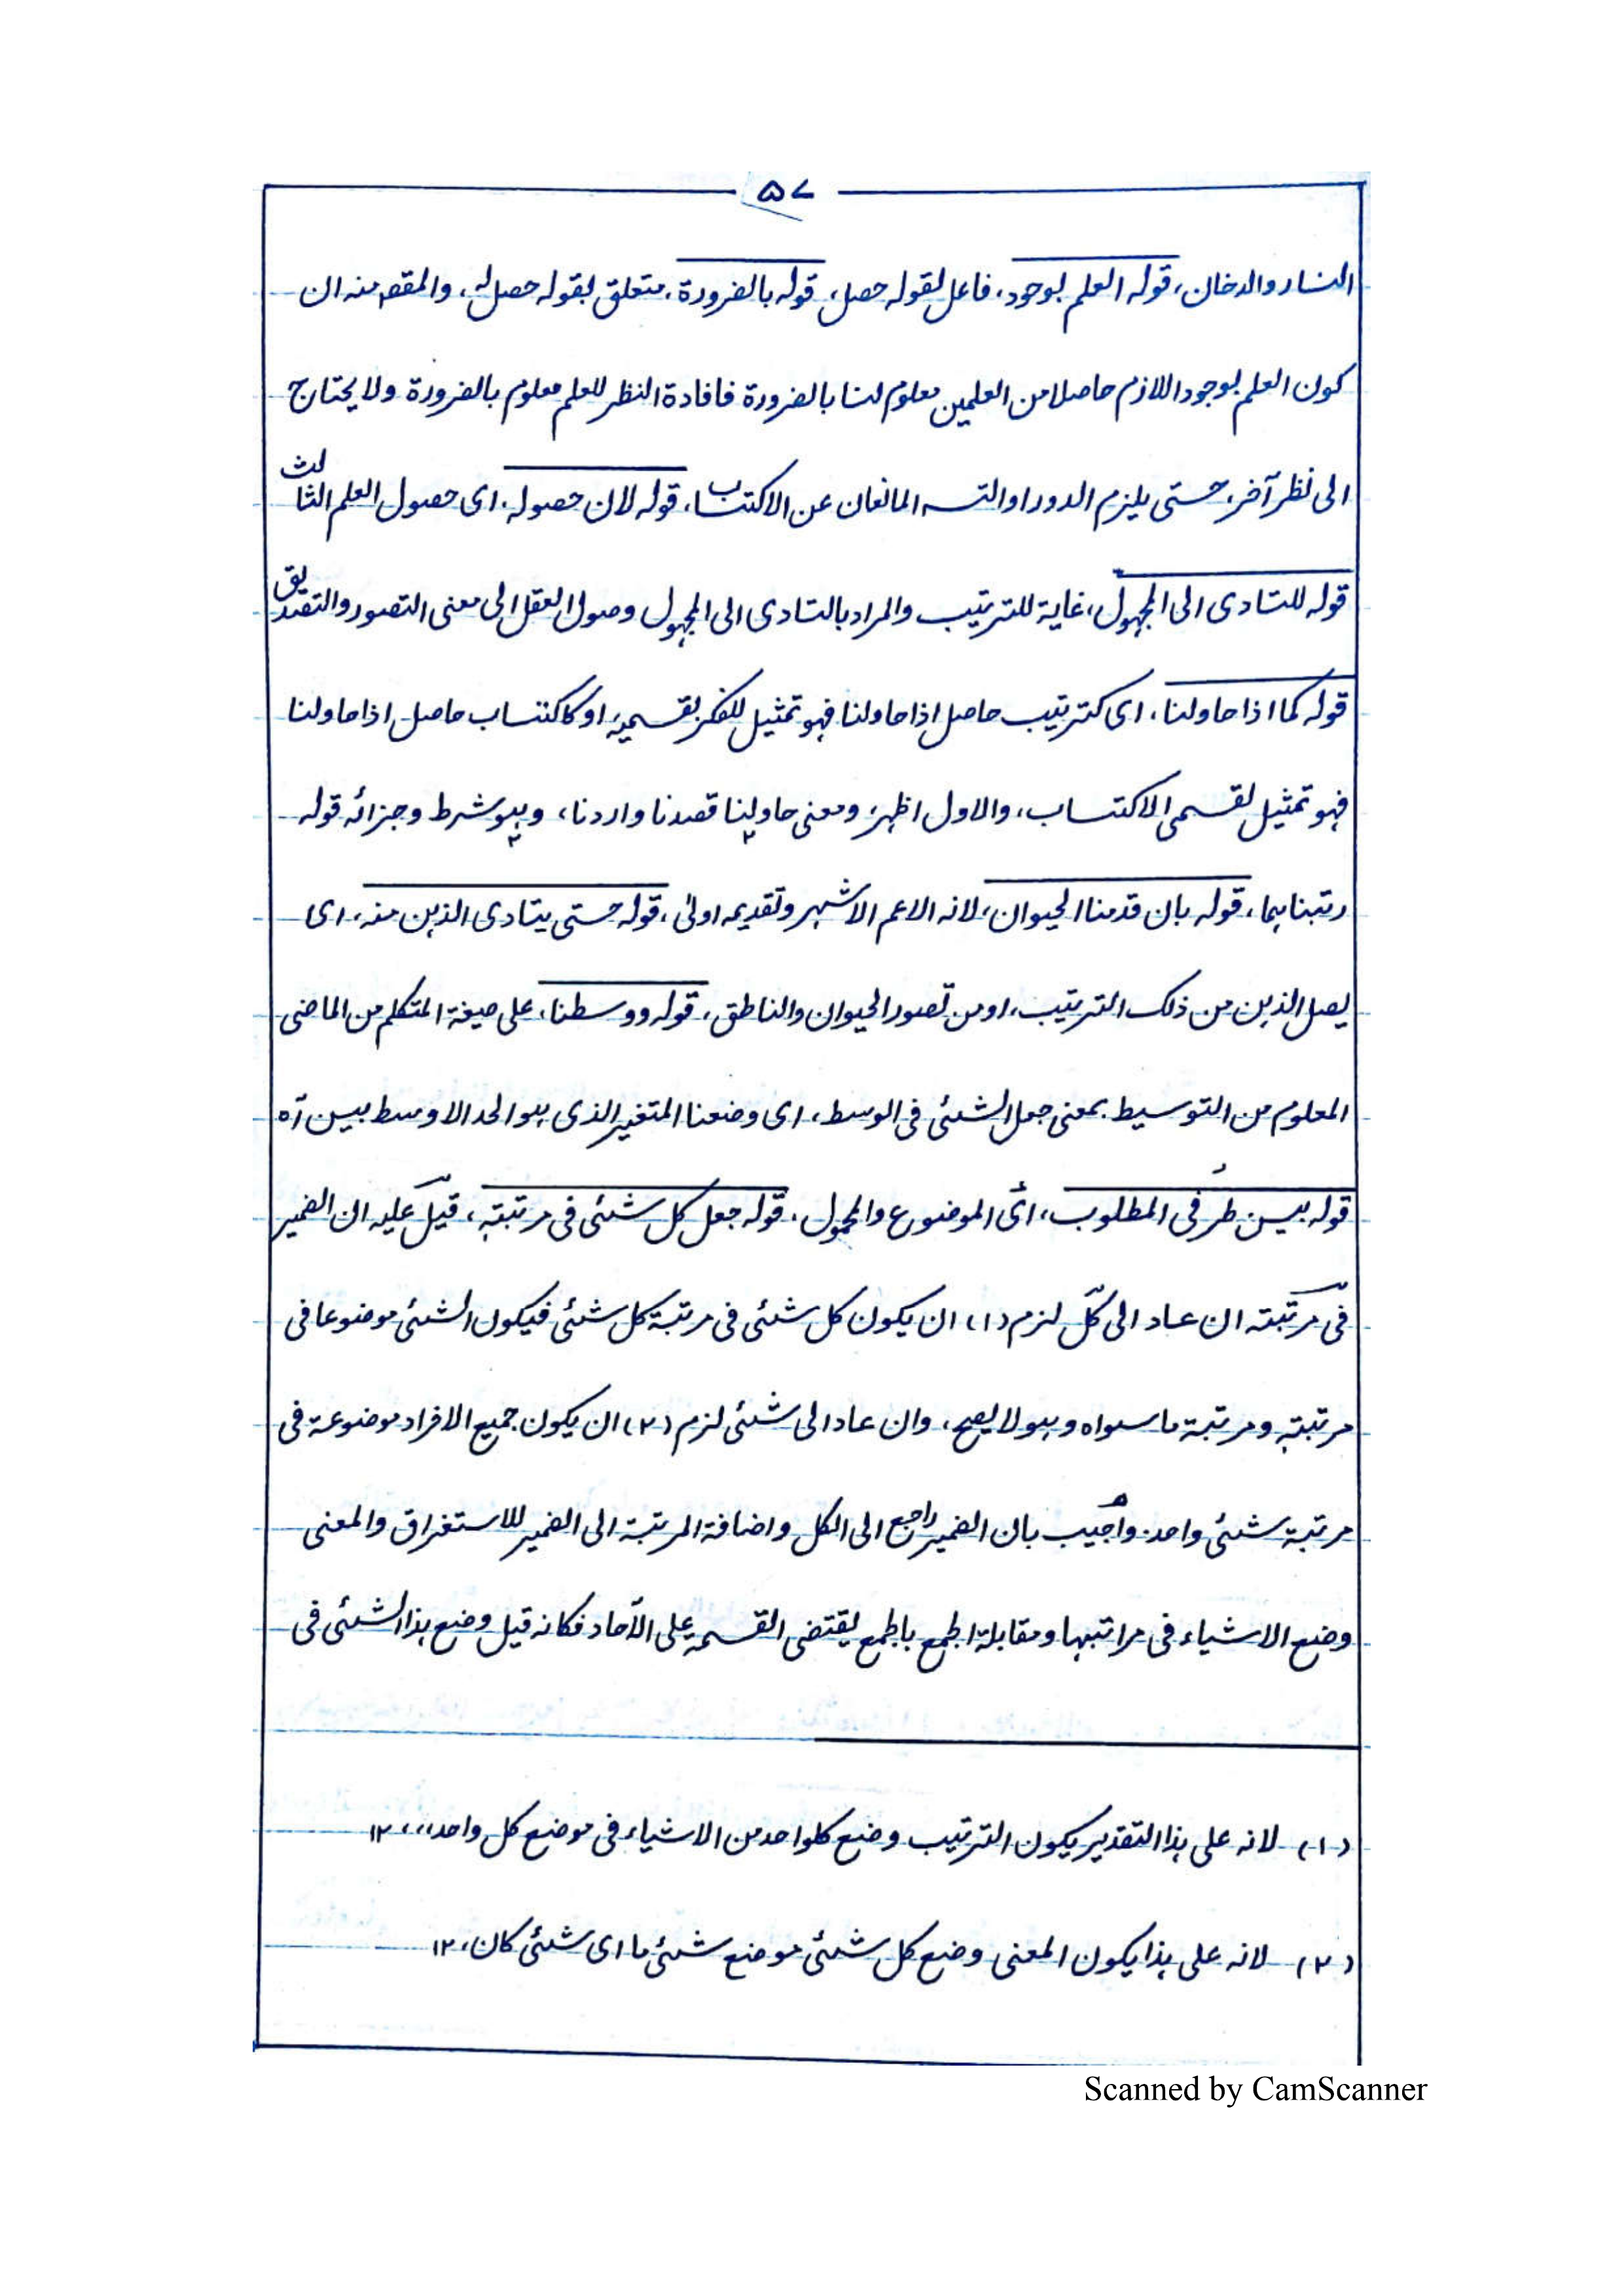 ٥٧
النار والدخان، قوله العلم بوجود، فاعل لقوله حصل، قوله بالضرورة، متعلق بقوله حصل له، والمقصـ منه ان
كون العلم بوجود اللازم حاصلا من العلمين معلوم لنا بالضرورة فافادة النظر للعلم معلوم بالضرورة ولا يحتاج
الى نظر آخر، حتى يلزم الدور او التسـ المانعان عن الاكتساب، قوله لان حصوله، اى حصول العلم الثالث
قوله للتادى الى المجهول، غاية للترتيب والمراد بالتادى الى المجهول وصول العقل الى معنى التصور والتصديق
قوله كما اذا حاولنا، اى كترتيب حاصل اذا حاولنا فهو تمثيل للفكر بقسميه، او كاكتساب حاصل اذا حاولنا
فهو تمثيل لقسمى الاكتساب، والاول اظهر، ومعنى حاولنا قصدنا واردنا، وهو شرط وجزائه قوله
رتبناهما، قوله بان قدمنا الحيوان، لانه الاعم الاشهر وتقديمه اولى، قوله حتى يتادى الذهن منه، اى
يصل الذهن من ذلك الترتيب، او من تصور الحيوان والناطق، قوله ووسطنا، على صيغة المتكلم من الماضى
المعلوم من التوسيط بمعنى جعل الشئى فى الوسط، اى وضعنا المتغير الذى هو الحد الاوسط بين آه
قوله بين طرفى المطلوب، اى الموضوع والمحمول، قوله جعل كل شئى فى مرتبته، قيل عليه ان الضمير
فى مرتبته ان عاد الى كل لزم (١) ان يكون كل شئى فى مرتبة كل شئى فيكون الشئى موضوعا فى
مرتبته ومرتبة ما سواه وهو لا يصح، وان عاد الى شئى لزم (٢) ان يكون جميع الافراد موضوعة فى
مرتبة شئى واحد، واجيب بان الضمير راجع الى الكل واضافة المرتبة الى الضمير للاستغراق والمعنى
وضع الاشياء فى مراتبها ومقابلة الجمع بالجمع يقتضى القسمة على الآحاد فكانه قيل وضع هذا الشئى فى
(١) لانه على هذا التقدير يكون الترتيب وضع كلواحد من الاشياء فى موضع كل واحد،،، ١٢
(٢) لانه على هذا يكون المعنى وضع كل شئى موضع شئى ما اى شئى كان، ١٢
Scanned by CamScanner